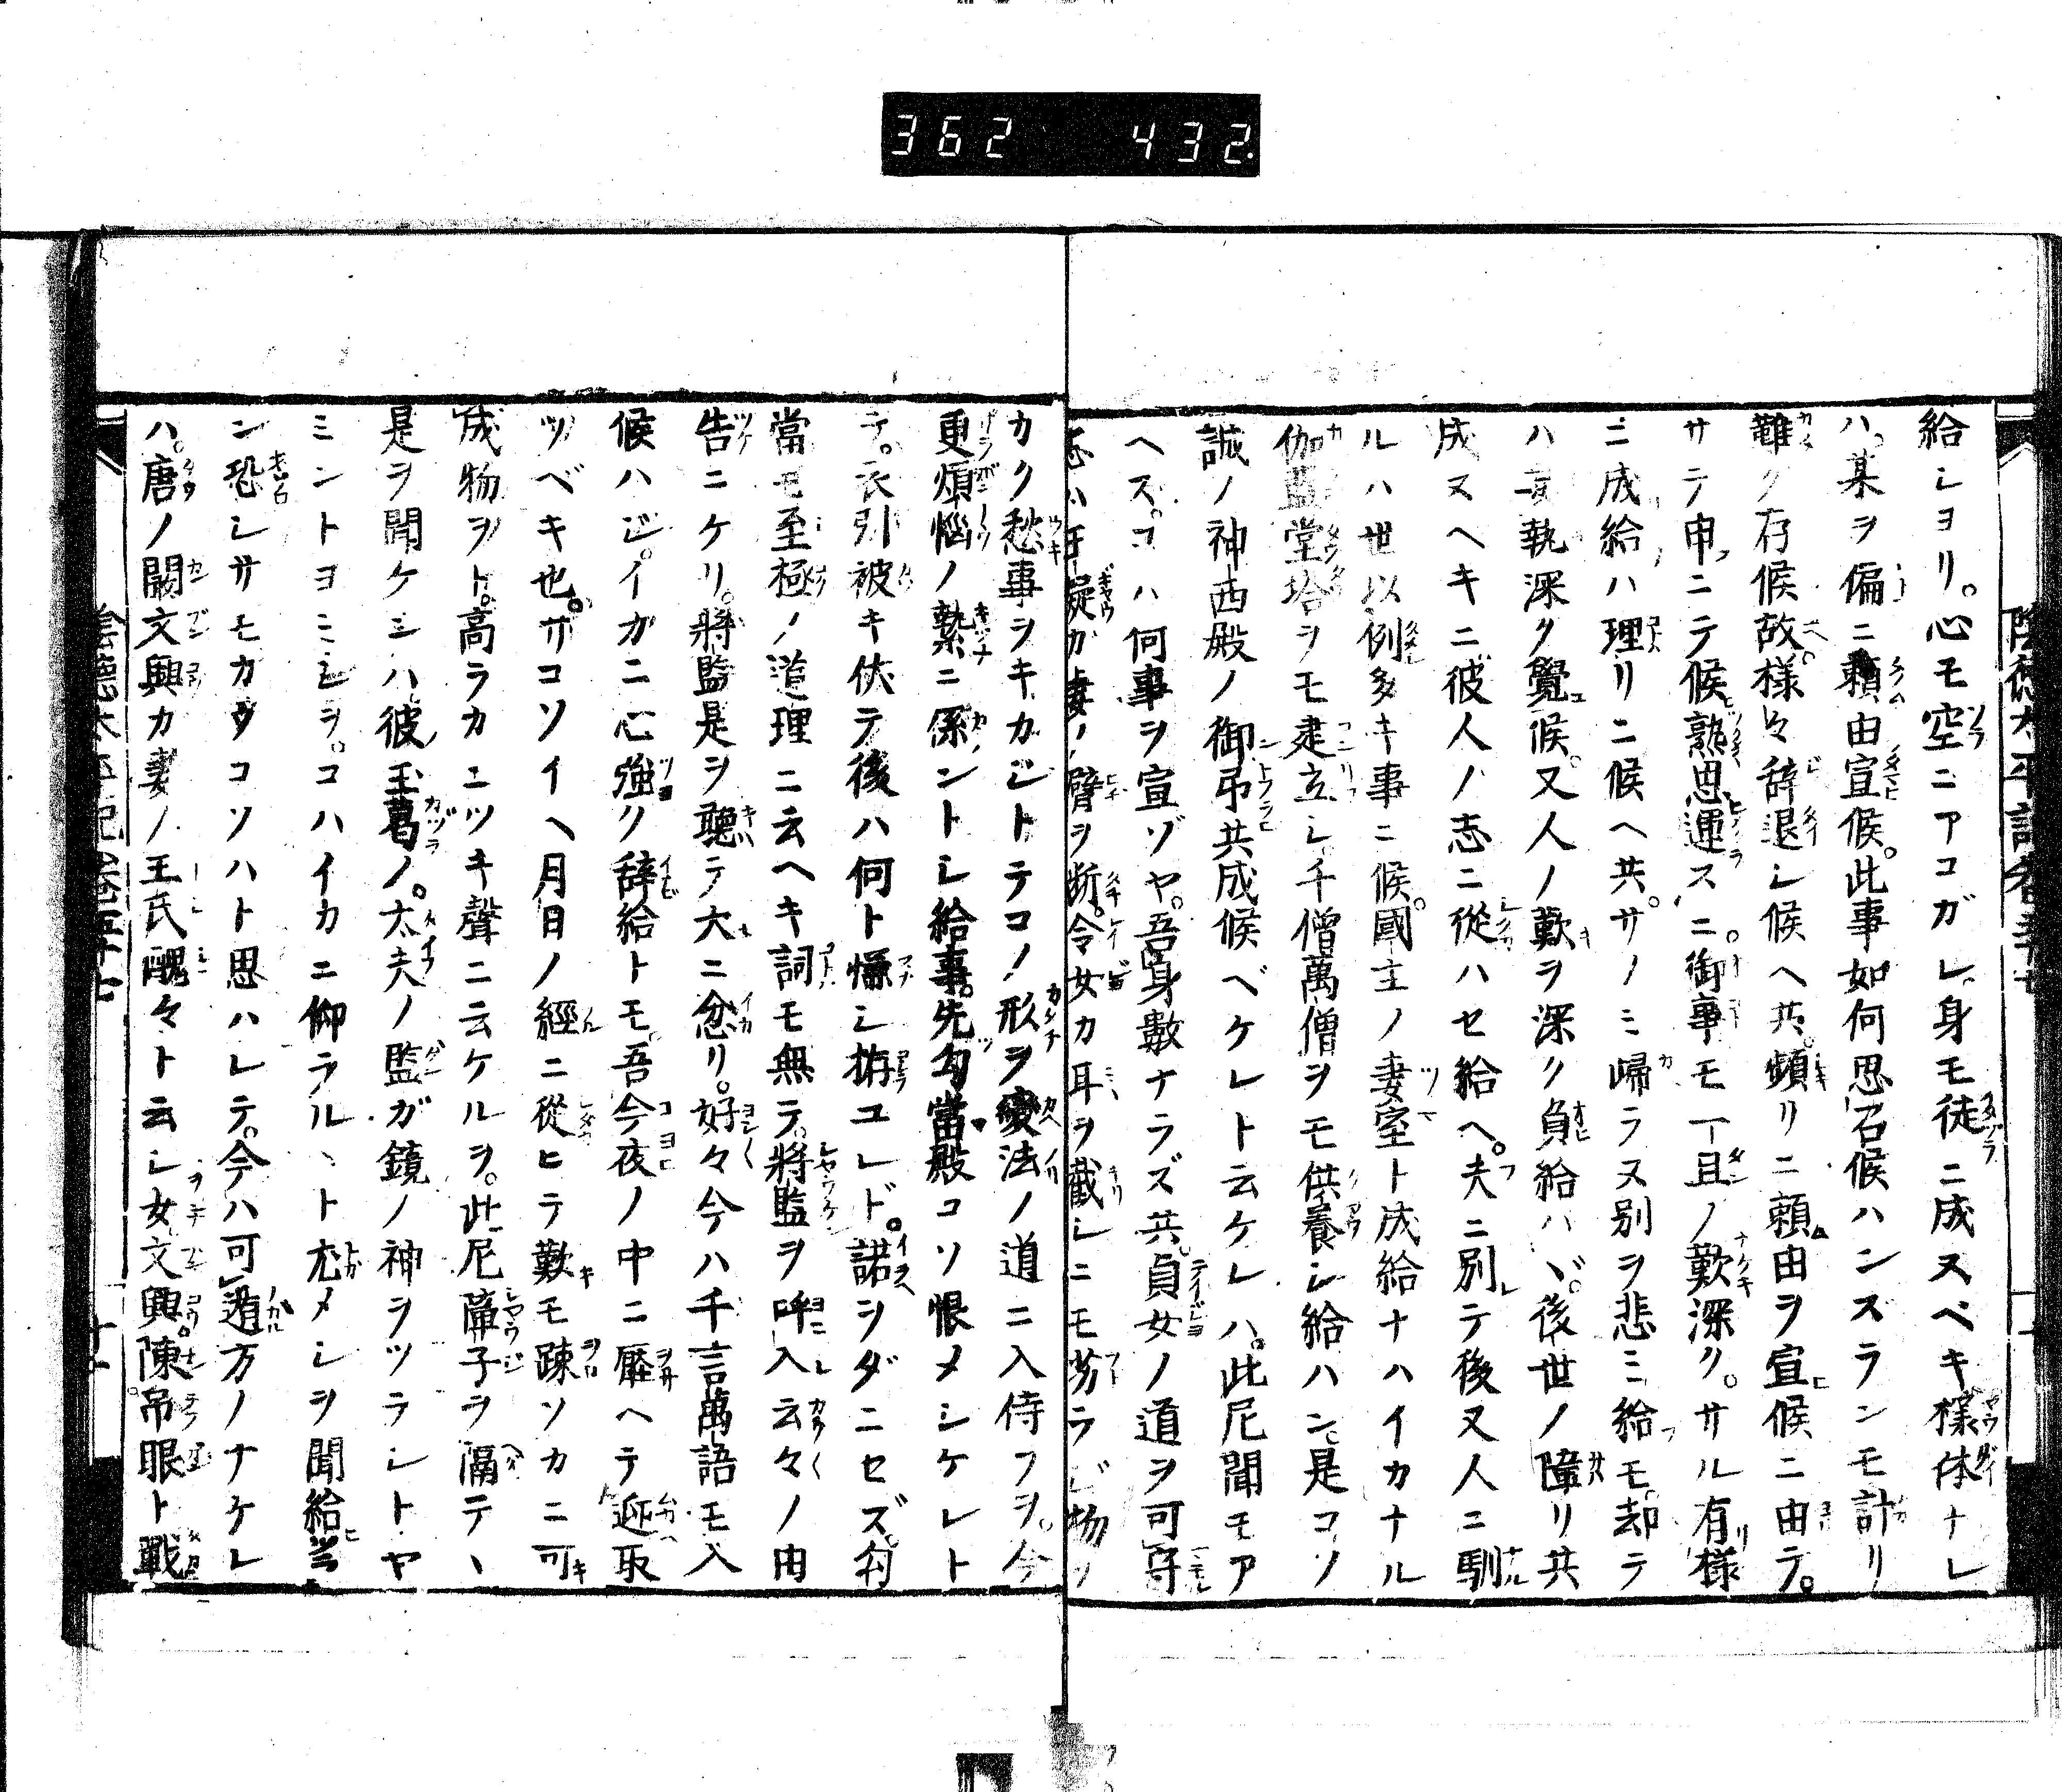 362 432.
陰徳太平記卷五十七
給シヨリ。心モ空ニアコガレ。身モ徒ニ成ヌベキ樣体ナレ
ハ。某ヲ偏ニ頼由宣候。此事如何思召候ハンズランモ計リ
難ク存候故。様々辞退シ候ヘ共。頻リニ頼由ヲ宣候ニ由テ。
サテ申ニテ候。熟思運スニ。御事モ一旦ノ歎深ク。サル有様
ニ成給ハ理リニ候ヘ共。サノミ帰ラヌ別ヲ悲ミ給モ。却テ
ハ妄執深ク覺候。又人ノ歎ヲ深ク負給ハヾ。後世ノ障リ共
成ヌヘキニ彼人ノ志ニ從ハセ給ヘ。夫ニ別テ後又人ニ馴
ルハ世以例多キ事ニ候。國主ノ妻室ト成給ナハイカナル
伽藍堂塔ヲモ建立シ千僧萬僧ヲモ供養シ給ハン。是コソ
誠ノ神西殿ノ御弔共成候ベケレト云ケレハ。此尼聞モア
ヘス。コハ何事ヲ宣ゾヤ。吾身數ナラズ共。貞女ノ道ヲ可守
志ハ王凝ガ妻ノ臂ヲ断。令女カ耳ヲ截シニモ劣ラジ物ヲ
カク愁事ヲキカジトテコノ形ヲ變法ノ道ニ入侍フヲ。今
更煩惱ノ繋ニ係ントシ給事。先勾當殿コソ恨メシケレト
テ。衣引被キ伏テ後ハ何ト慊シ拵ユレド。諾ヲダニセズ。勾
當モ至極ノ道理ニ云ヘキ詞モ無テ。將監ヲ呼入云々ノ由
告ニケリ。將監是ヲ聴テ大ニ忿リ。好々今ハ千言萬語モ入
候ハジ。イカニ心強ク辞給トモ。吾今夜ノ中ニ壓ヘテ迎取
ツベキ也。サコソイヘ月日ノ經ニ從ヒテ歎モ踈ソカニ可
成物ヲト。高ラカニツキ聲ニ云ケルヲ。此尼障子ヲ隔テヽ
是ヲ聞ケンハ彼玉葛ノ。太夫ノ監ガ鏡ノ神ヲツラシトヤ
ミントヨミシヲ。コハイカニ仰ラルヽト尤メシヲ聞給
ン恐シサモカクコソハト思ハレテ。今ハ可遁方ノナケレ
ハ。唐ノ闞文興カ妻ノ王氏醜々ト云シ女文興。陳吊眼ト戰
陰徳太平記卷五十七